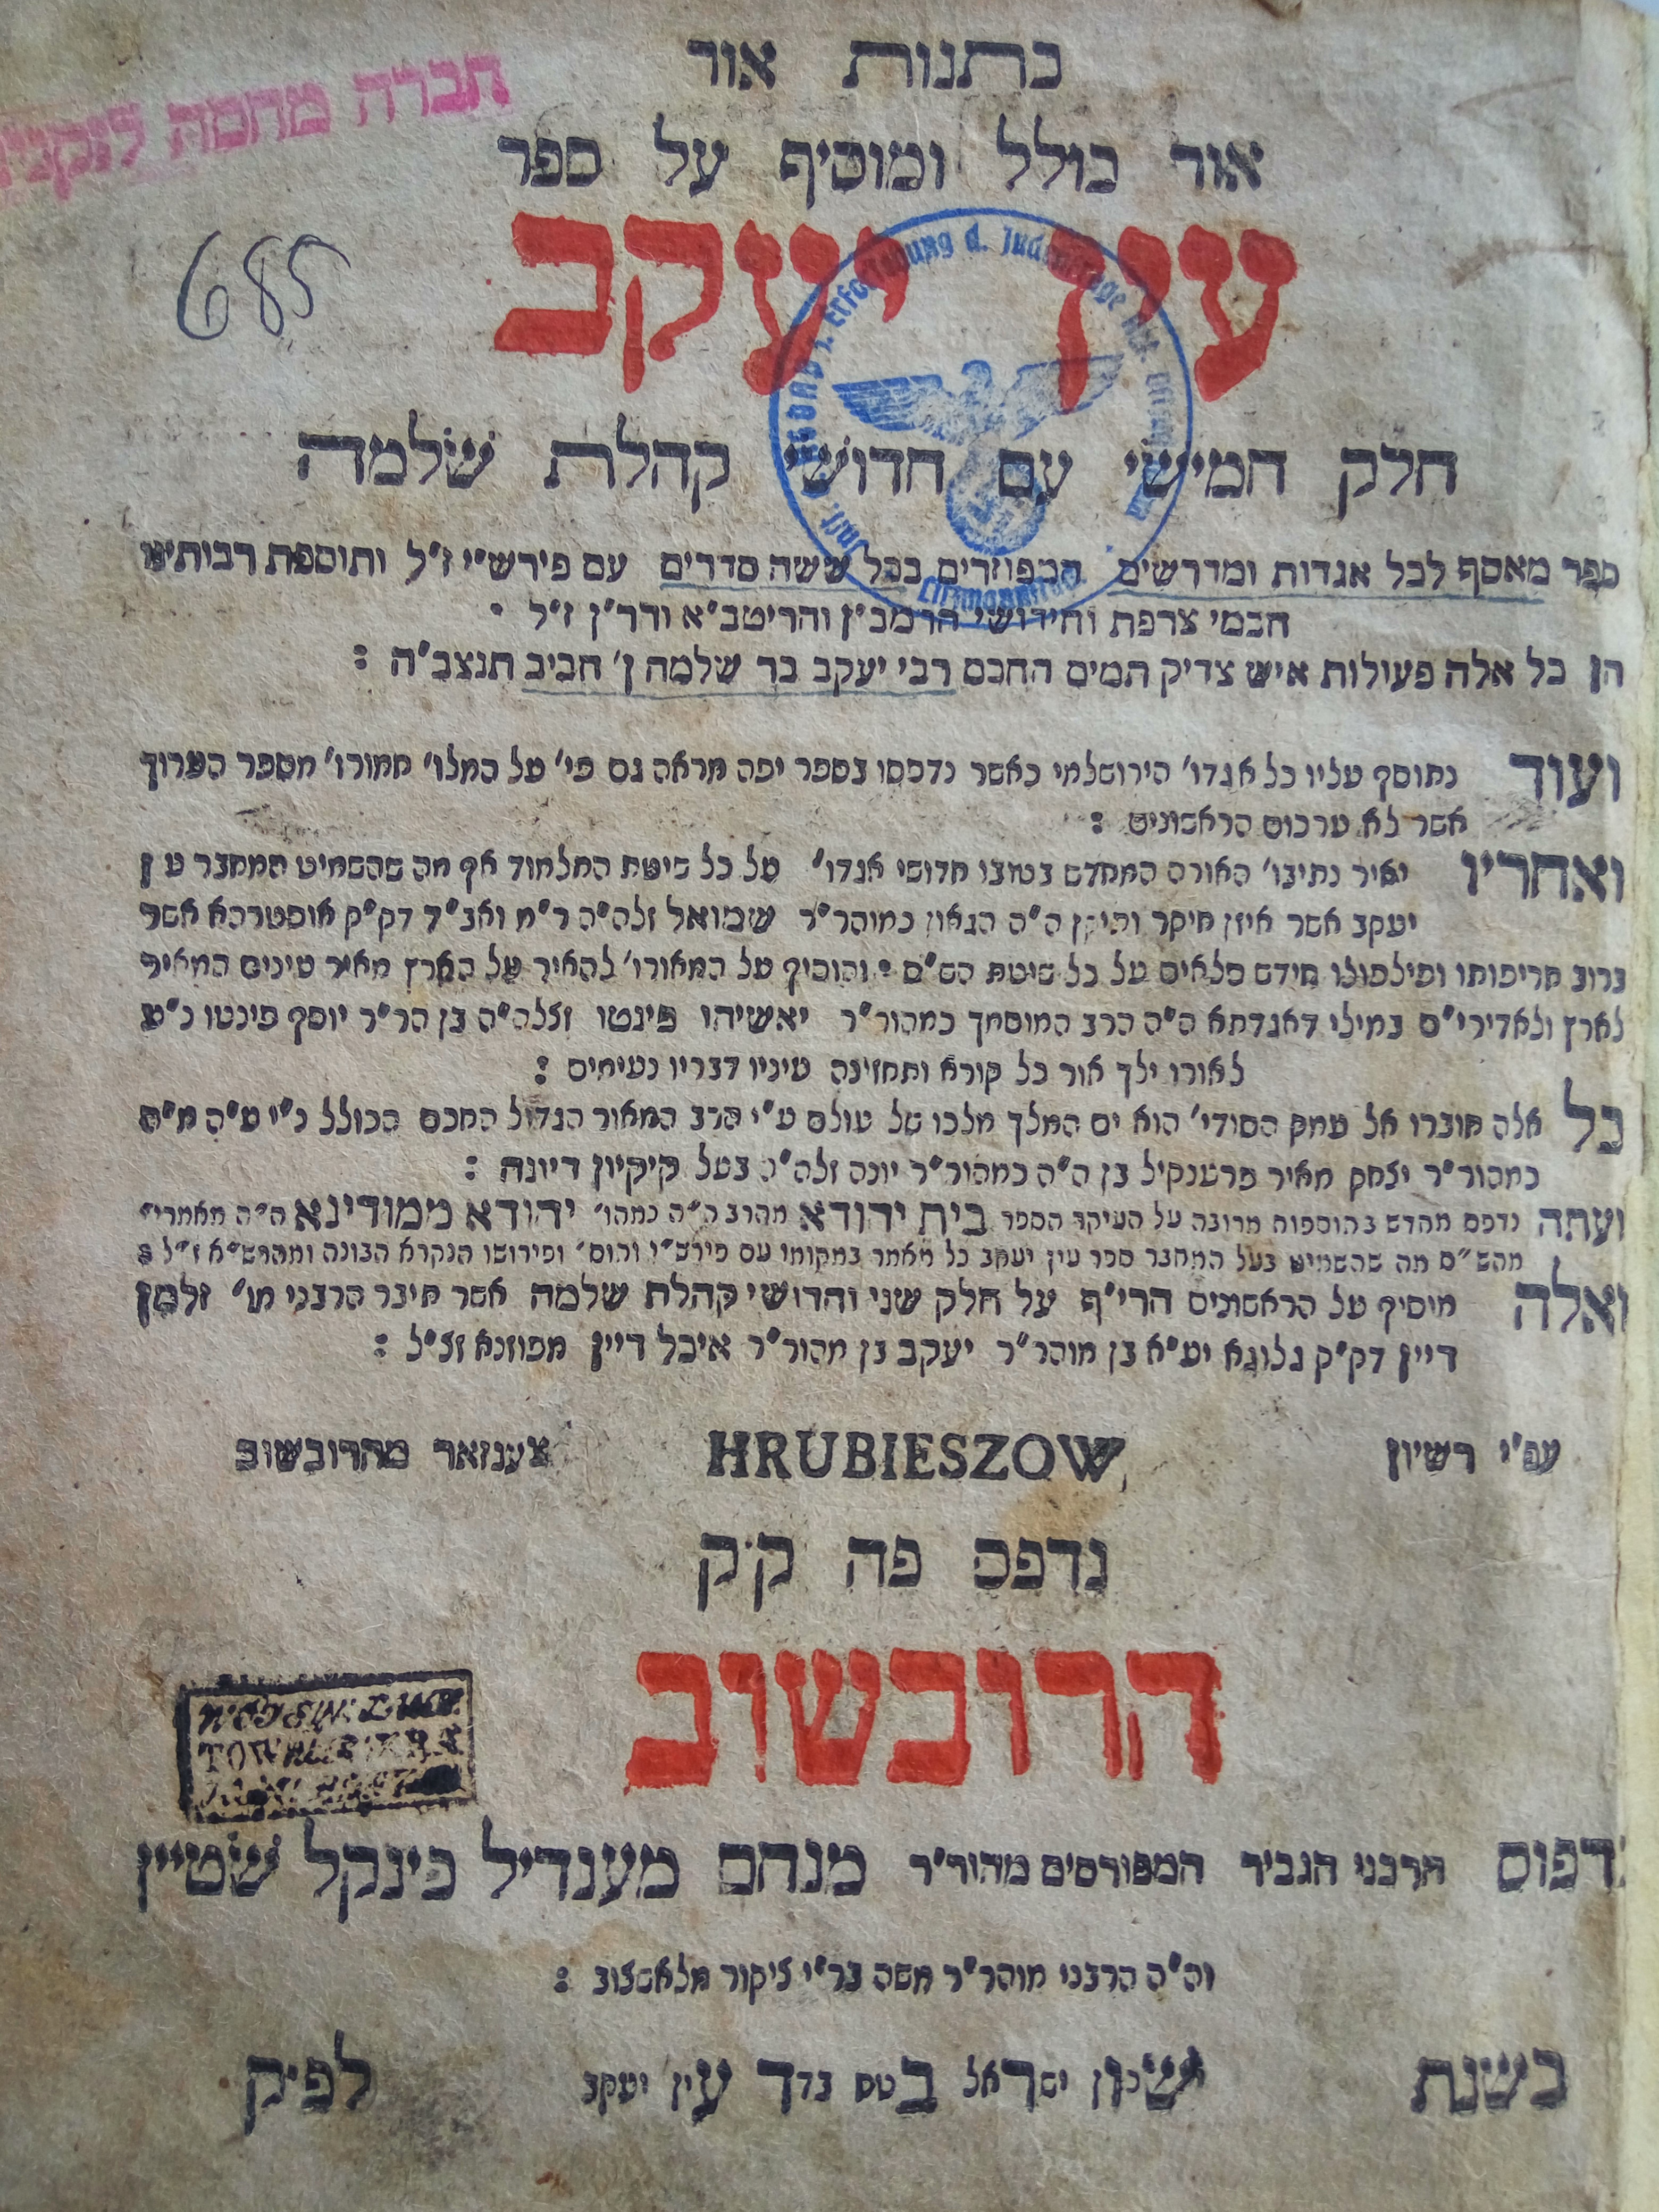 כתנות אור
חברה מחסה לזקנים
אור כולל ומוסיף על ספר
עין יעקב
685
Inst. d. NSDAP z. Erforschung d. Judenfrage
Litzmannstadt
חלק חמישי עם חדושי קהלת שלמה
ספר מאסף לכל אגדות ומדרשים המפוזרים בכל ששה סדרים עם פירש״י ז״ל ותוספת רבותינו
חכמי צרפת וחידושי הרמב״ן והריטב״א והר״ן ז״ל
הן כל אלה פעולות איש צדיק תמים החכם רבי יעקב בר שלמה ן׳ חביב תנצב״ה :
ועוד נתוסף עליו כל אגדו׳ הירושלמי כאשר נדפסו בספר יפה מראה גם פי׳ על המלו׳ ממורו׳ מספר הערוך
אשר לא ערכום הראשונים :
ואחריו יאיר נתיבו׳ האורם המחדש בטובו חדושי אגדו׳ על כל שיטת התלמוד אף מה שהשמיט המחבר עין
יעקב אשר איזן חיקר ותיקן ה״ה הגאון כמוהר״ר שמואל זלה״ה ר״מ ואב״ד דק״ק אוסטרהא אשר
ברוב חריפותו ופילפולו חידש פלאים על כל שיטת הש״ס : והוסיף על המאורו׳ להאיר על הארץ מאיר עינים המאיר
לארץ ולאדירי״ם במילי דאגדתא ה״ה הרב המוסמך כמהור״ר יאשיהו פינטו זצלה״ה בן הר״ר יוסף פינטו נ״ע
לאורו ילך אור כל קורא ותחזינה עיניו דבריו נעימים :
כל אלה חוברו אל עמק הסודי׳ הוא ים המלך מלכו של עולם ע״י הרב המאור הגדול החכם הכולל נ״י ע״ה מ״ה
כמהור״ר יצחק מאיר פרענקיל בן ה״ה כמהור״ר יונה זלה״ה בעל קיקיון דיונה :
ועתה נדפס מחדש בהוספות מרובה על העיקר הספר בית יהודא מהרב ה״ה כמהו׳ יהודא ממודינא ה״ה מאמרי״
מהש״ס מה שהשמיט בעל המחבר ספר עין יעקב כל מאמר במקומו עם פירש״י ותוס׳ ופירושו הנקרא הבונה ומהרש״א ז״ל :
ואלה מוסיף על הראשונים הרי״ף על חלק שני וחדושי קהלת שלמה אשר חיבר הרבני מו׳ זלמן
דיין דק״ק גלוגא יע״א בן מוהר״ר יעקב בן מהור״ר אייבל דיין מפוזנא זצ״ל :
עפ״י רשיון HRUBIESZOW, צענזאר מהרובשוב
נדפס פה ק״ק
הרובשוב
בדפוס הרבני הגביר המפורסים מהור״ר מנחם מענדיל פינקל שטיין
וה״ה הרבני מוהר״ר משה בר״י ציקור מלאשצוב :
בשנת וישכון ישראל בטח בדד עין יעקב לפ״ק